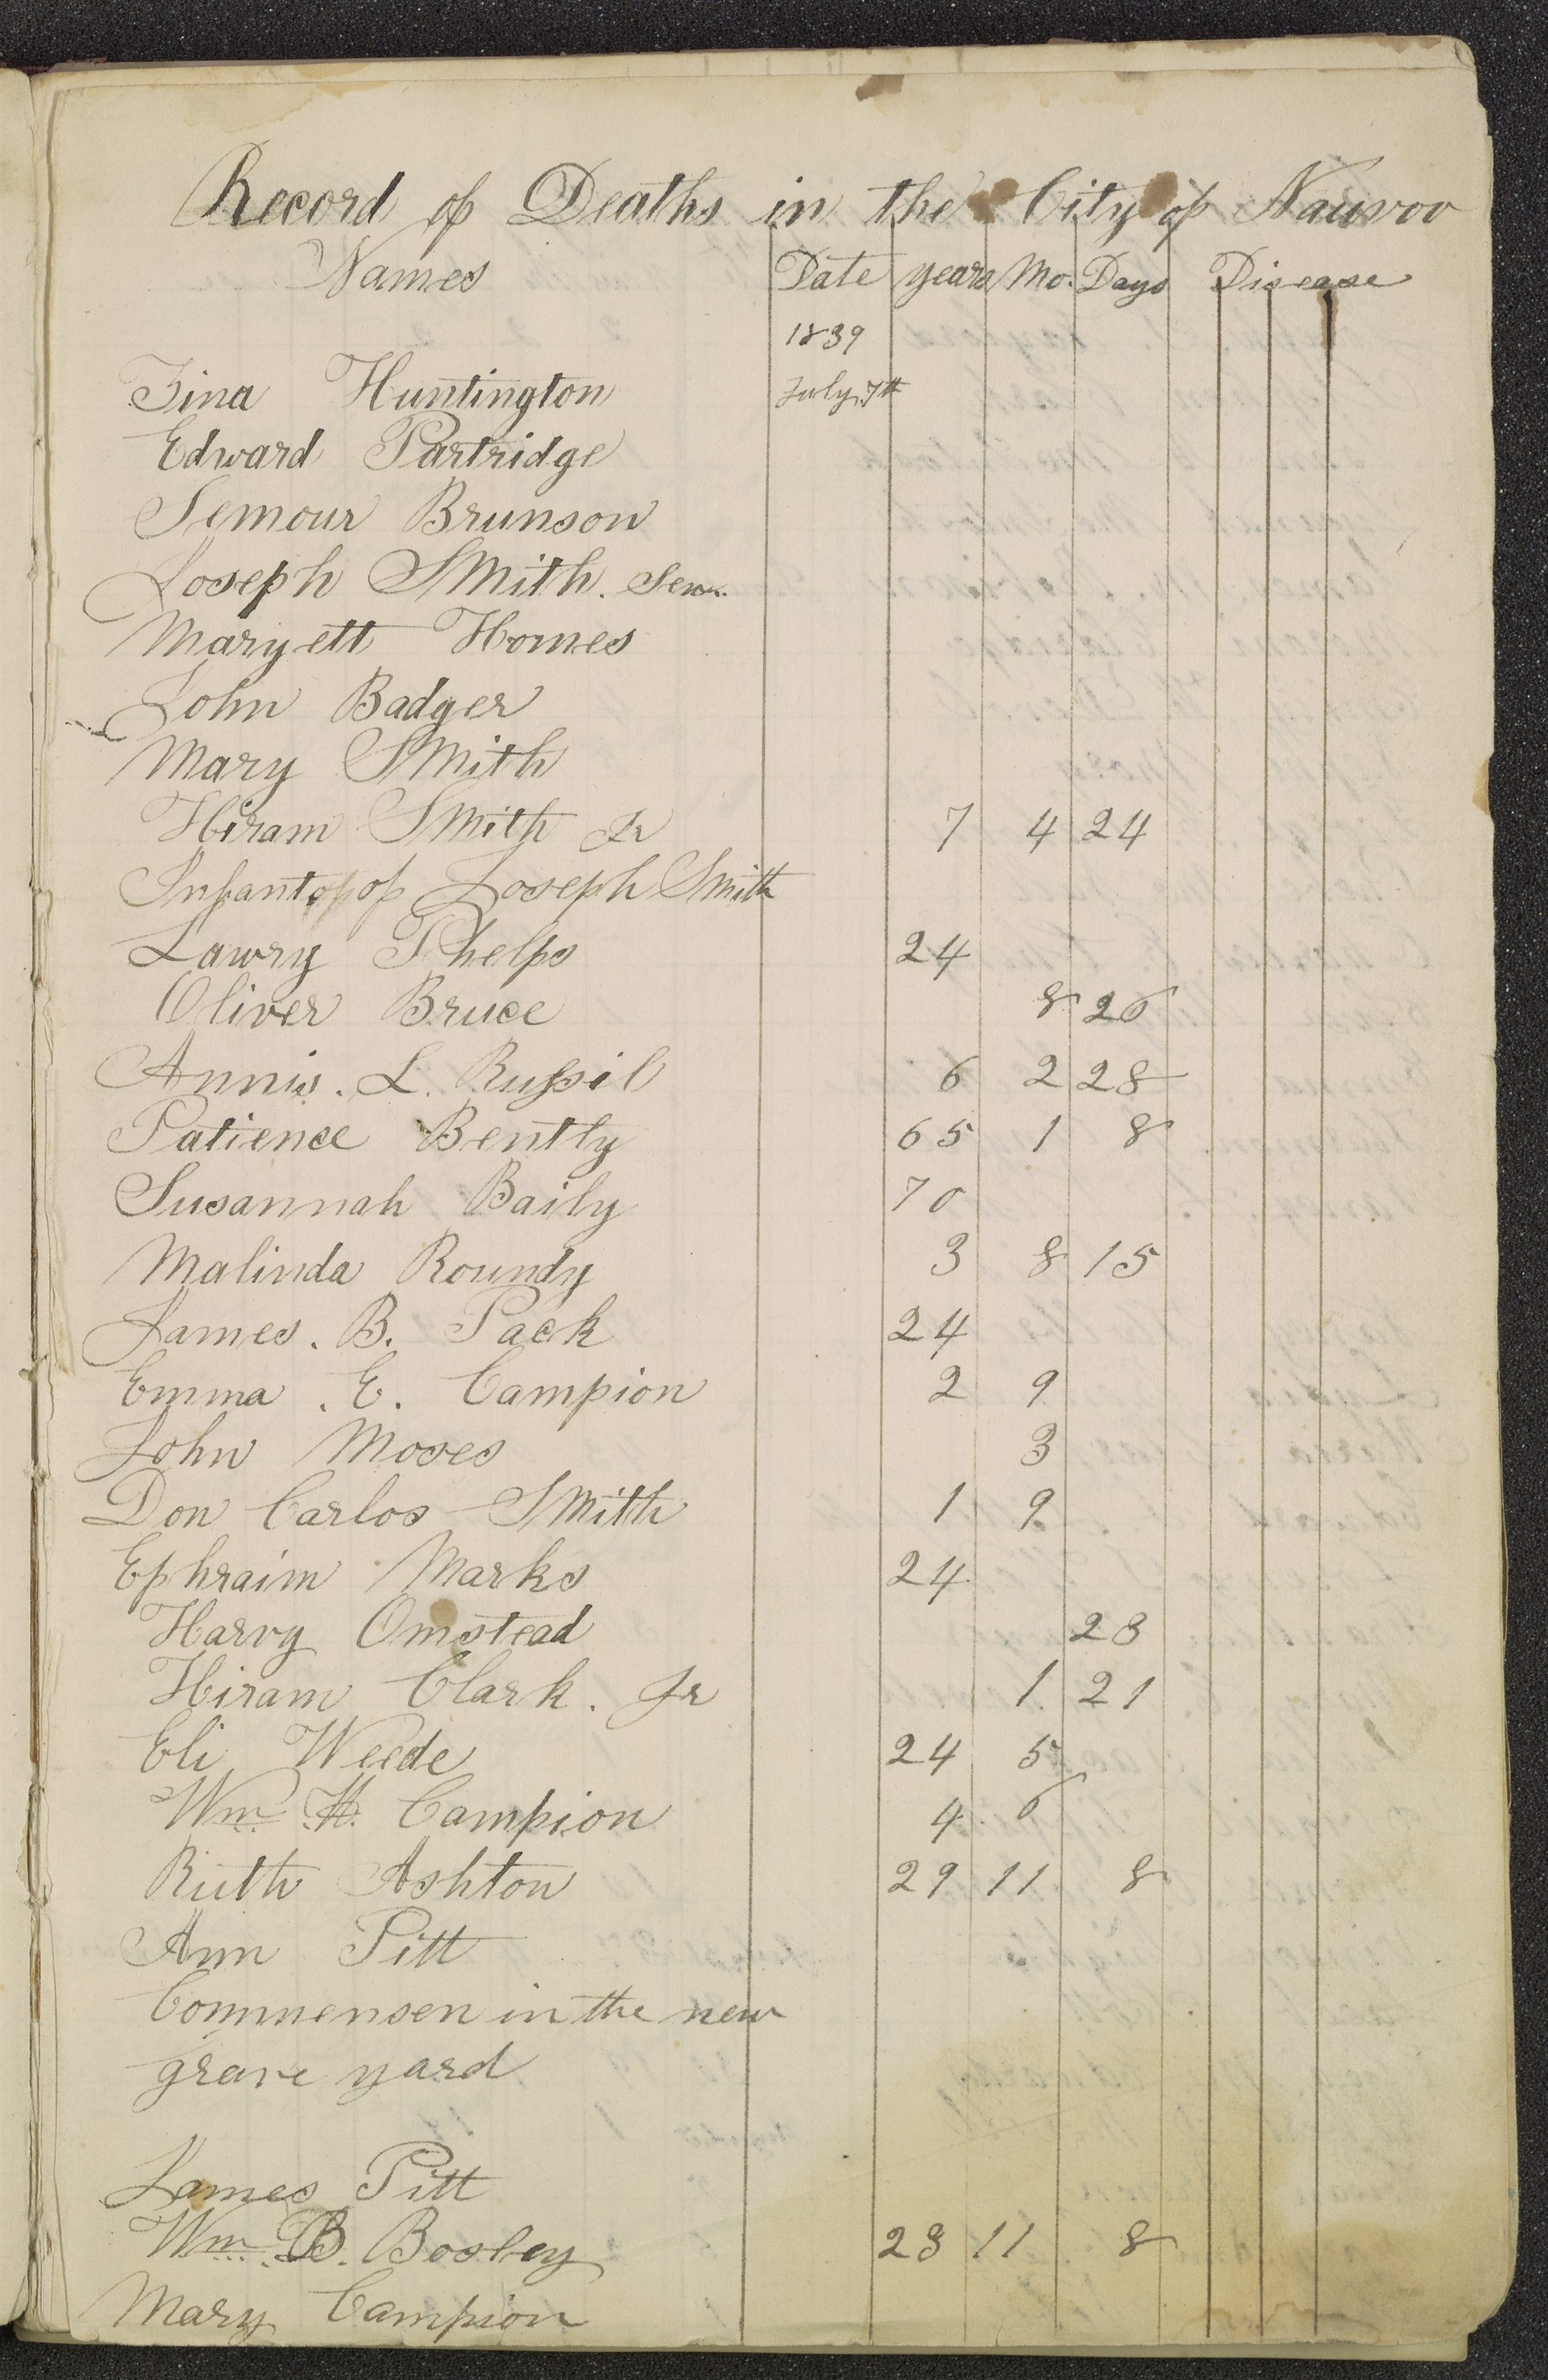 Record of Deaths in the City of Nauvoo
Names Date years Mo. Days Disease
1839
Zina Huntington July 7th
Edward Partridge
Semour Brunson
Joseph Smith. Sen.
Maryett Homes
John Badger
Mary Smith
Hiram Smith Jr 7 4 24
Infant of of Joseph Smith
Lawry Phelps 24
Oliver Bruce 8 26
Annis. L. Russil 6 2 28
Patience Bently 65 1 8
Susannah Baily 70
Malinda Roundy 3 8 15
James. B. Pack 24
Emma. E. Campion 2 9
John Moses 3
Don Carlos Smith 1 9
Ephraim Marks 24
Harvy Omstead 23
Hiram Clark. Jr 1 21
Eli Weede 24 5
Wm. H. Campion 4 6
Ruth Ashton 29 11 8
Ann Pitt
Commensen in the new
grave yard
James Pitt
Wm. B. Bosley 23 11 8
Mary Campion